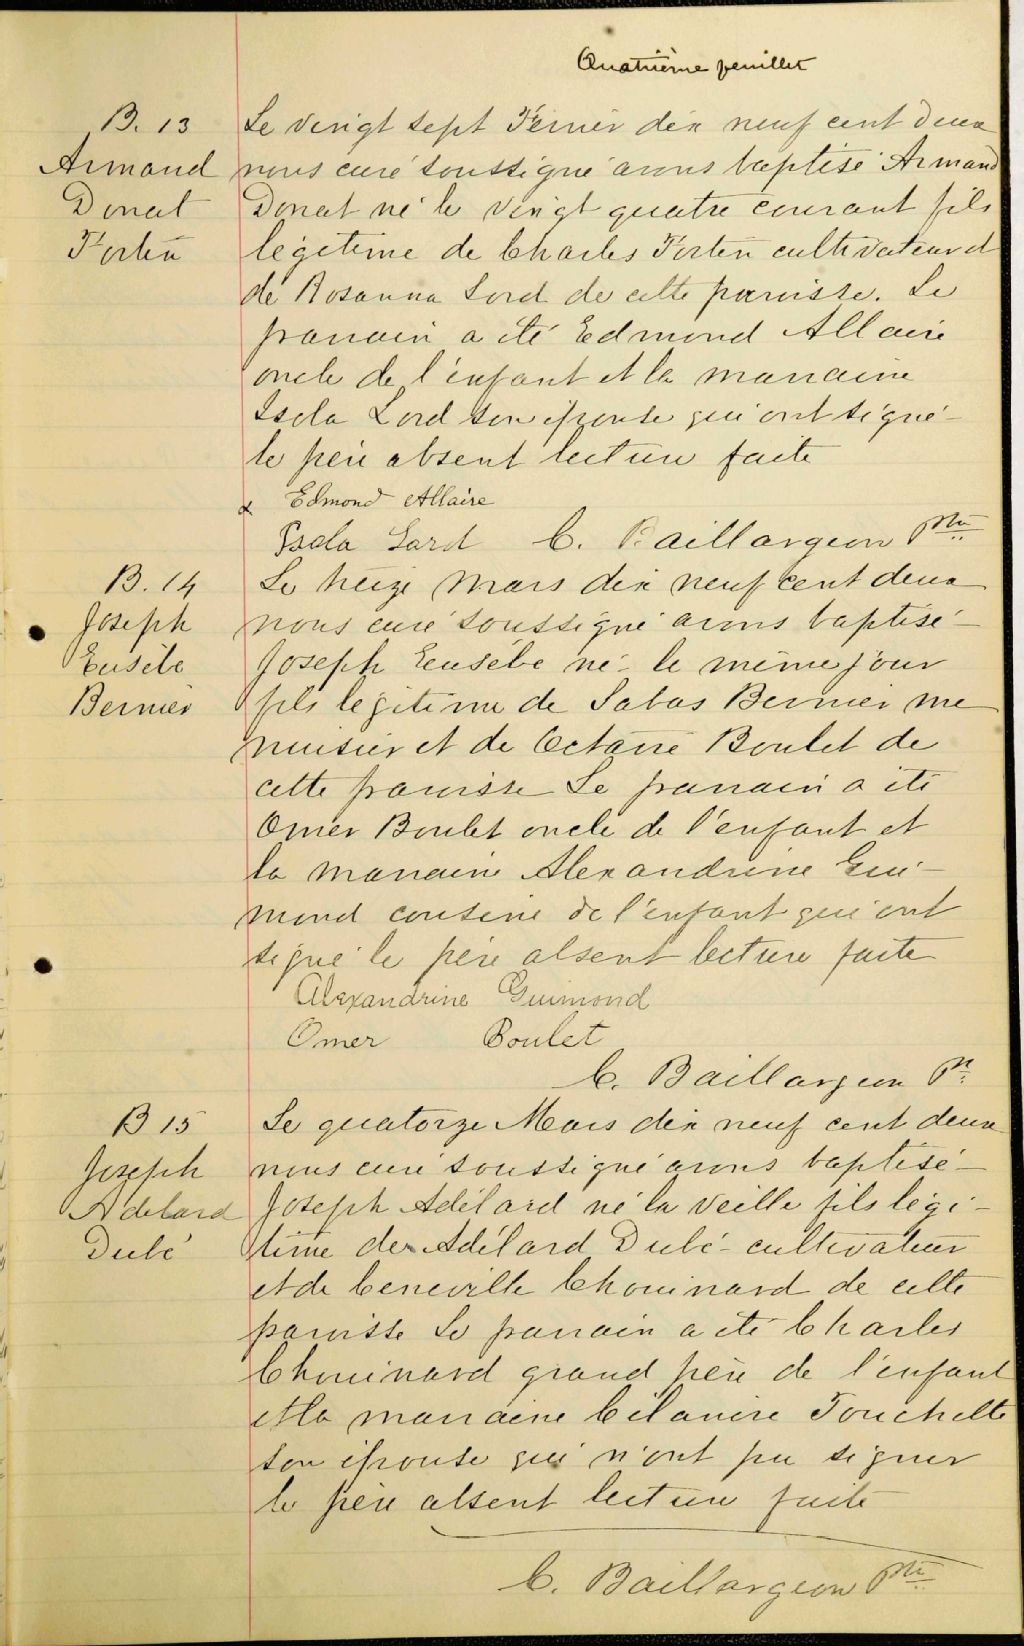 Quatrième feuillet
B. 13
Armand
Donat
Fortin
Le vingt sept Fevrier dix neuf cent deux
nous curé soussigné avons baptisé Armand
Donat né le vingt quatre courant fils
légitime de Charles Fortin cultivateur et
de Rosanna Lord de cette paroisse. Le
parrain a été Edmond Allaire
oncle de l'enfant et la marraine
Isola Lord son épouse qui ont signé
le père absent lecture faite
Edmond Allaire
Isola Lord C. Baillargeon Ptre
B. 14
Joseph
Eusèbe
Bernier
Le treize Mars dix neuf cent deux
nous curé soussigné avons baptisé
Joseph Eusébe né le même jour
fils légitime de Sabas Bernier me
nuisier et de Octavie Boulet de
cette paroisse Le parrain a été
Omer Boulet oncle de l'enfant et
la marraine Alexandrine Gui-
mond cousine de l'enfant qui ont
signé le père absent lecture faite
Alexandrine Guimond
Omer Boulet
C. Baillargeon Pr
B 15
Joseph
Adelard
Dubé
Le quatorze Mars dix neuf cent deux
nous curé soussigné avons baptisé
Joseph Adélard né la veille fils légi-
time de Adélard Dubé cultivateur
et de Ceneville Chouinard de cette
paroisse Le parrain a été Charles
Chouinard grand père de l'enfant
et la marraine Célanire Fouchette
son épouse qui n'ont pu signer
le père absent lecture faite
C. Baillargeon Ptre